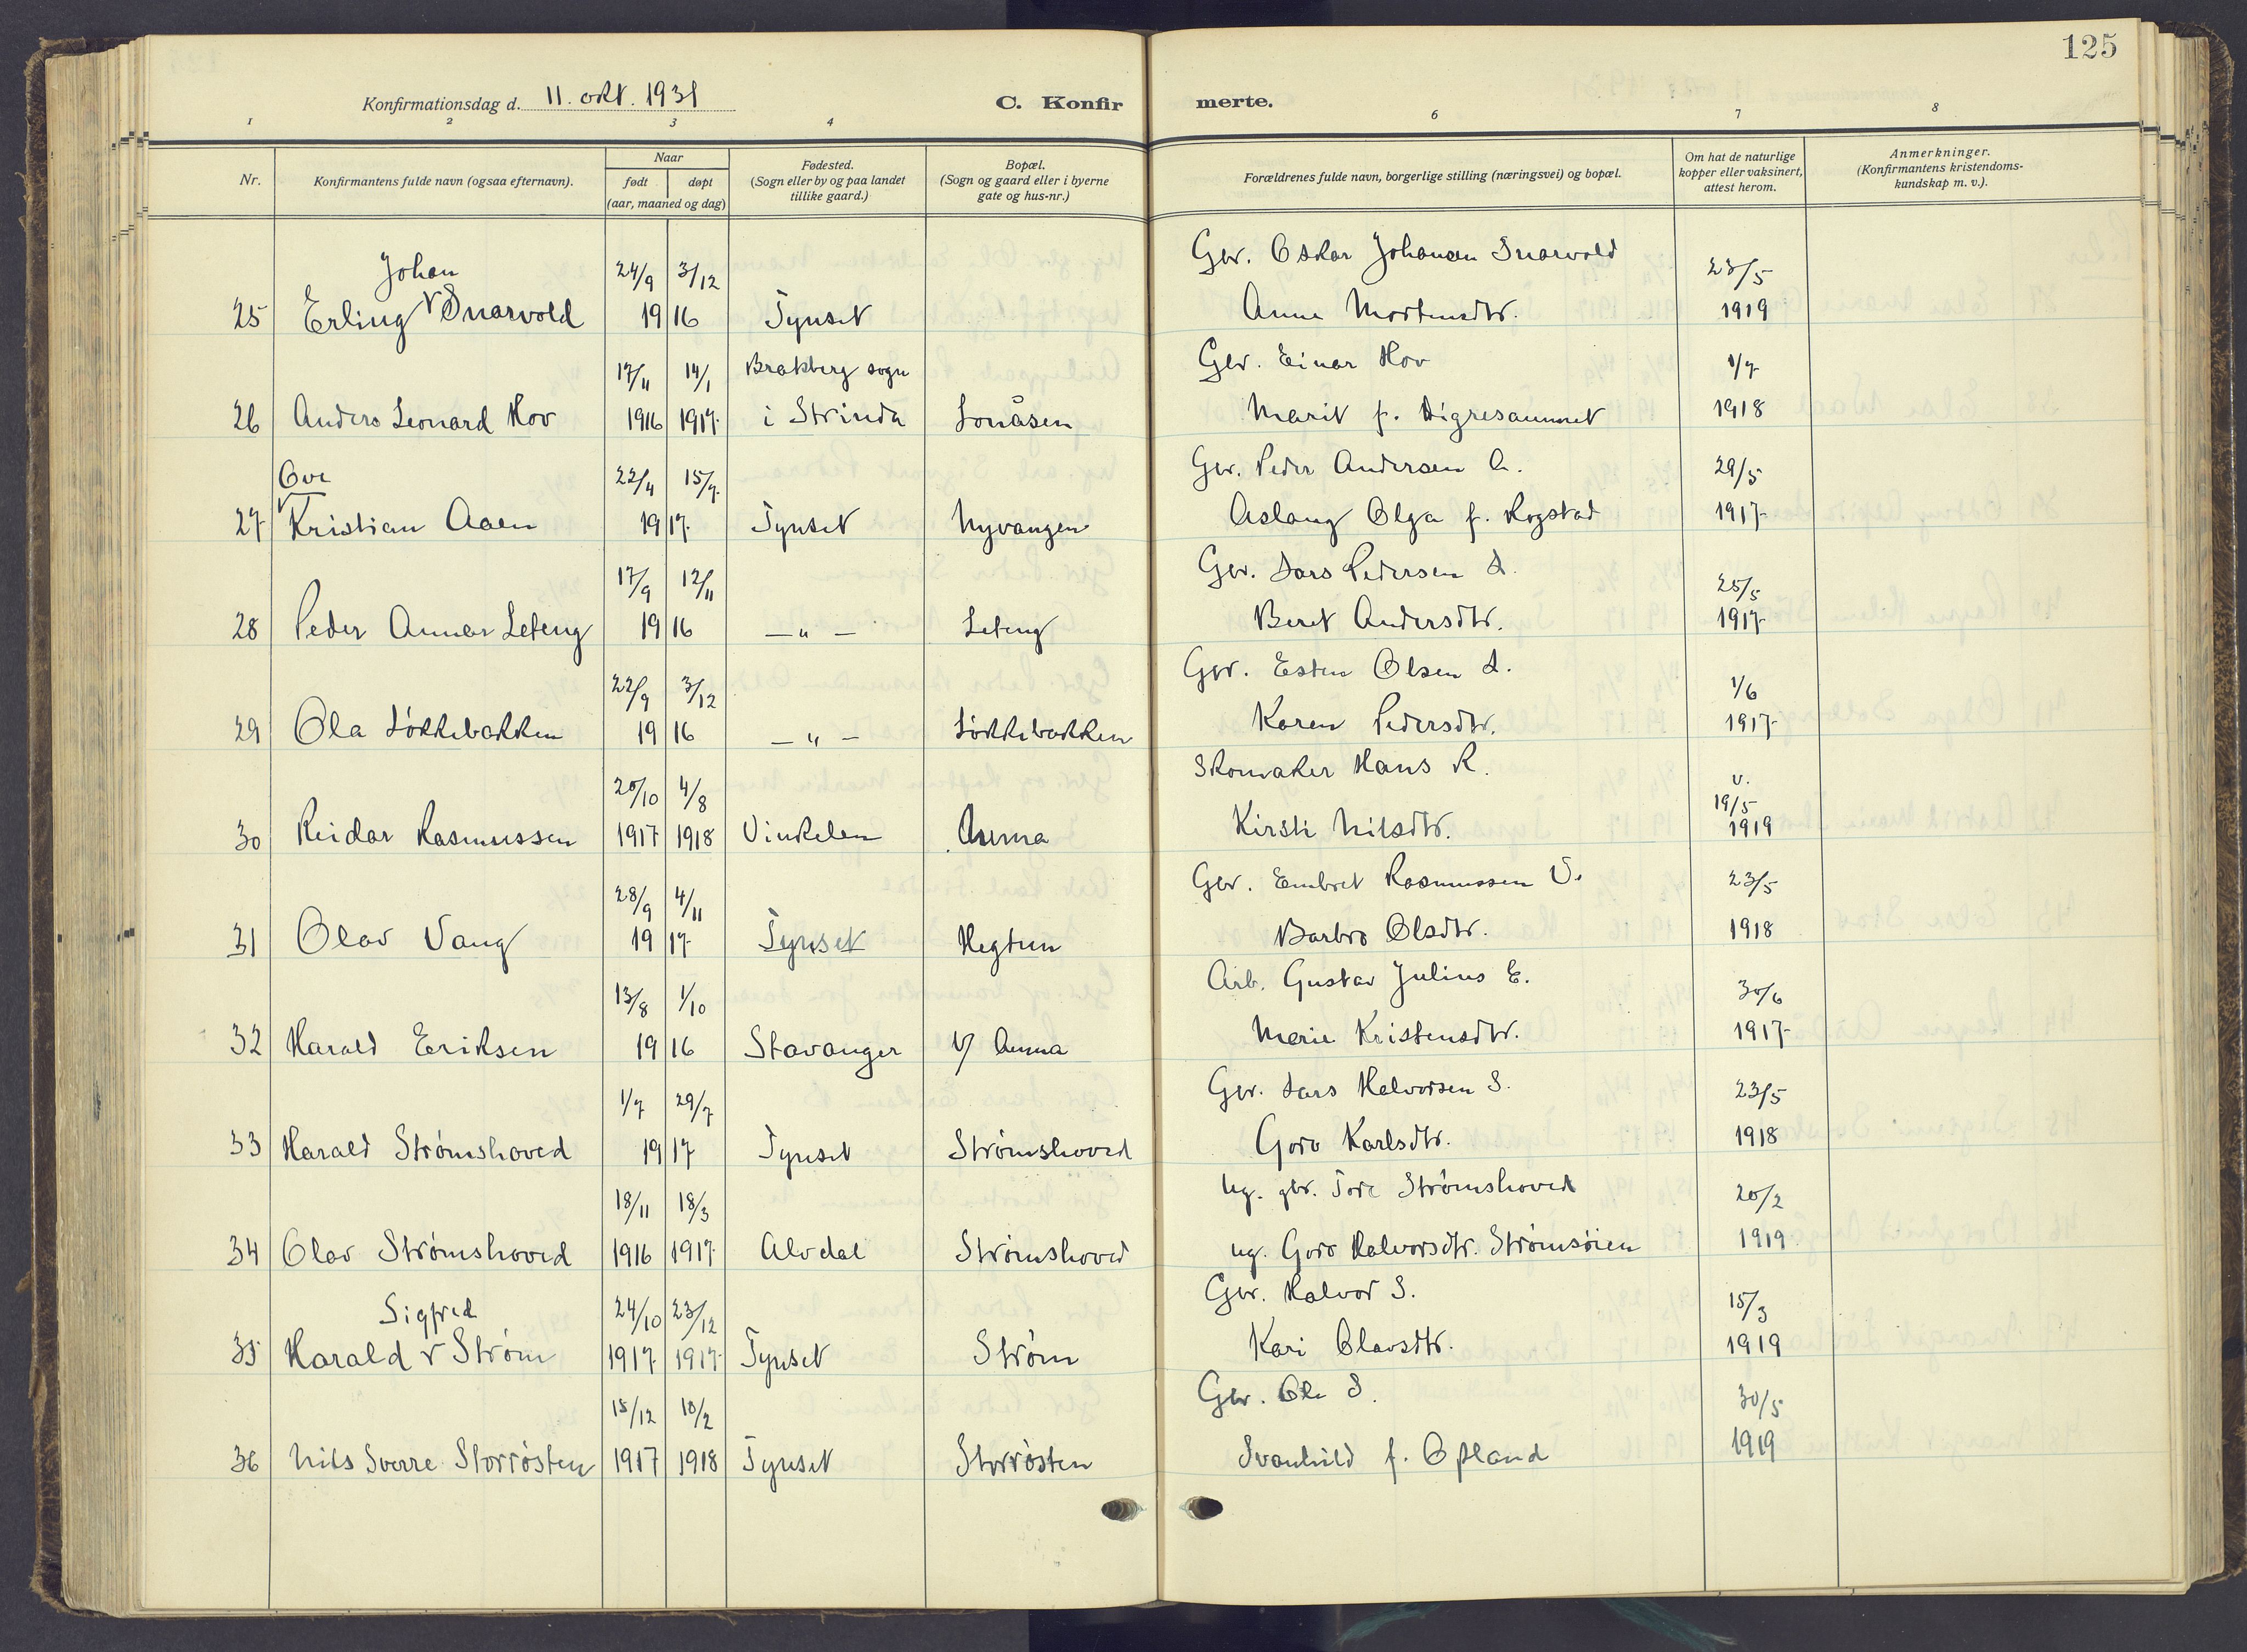 125
Konfirmationsdag d. 11. okt. 1931
C. Konfir
merte.
1 2 3 4 6 7 8
Nr.
Konfirmantens fulde navn (ogsaa efternavn).
Naar
født døpt
(aar, maaned og dag)
Fødested.
(Sogn eller by og paa landet
tillike gaard.)
Bopæl.
(Sogn og gaard eller i byerne
gate og hus-nr.)
Forældrenes fulde navn, borgerlige stilling (næringsvei) og bopæl.
Om hat de naturlige
kopper eller vaksinert,
attest herom.
Anmerkninger.
(Konfirmantens kristendoms-
kundskap m. v.).
Johan 24/9 3/12 Gbr. Oskar Johansen Snarvold 23/5
25 Erling Snarvold 19 16 Tynset Anne Mortensdtr. 1919
17/11 14/1 Bratsberg sogn Gbr. Einar Hov 1/7
26 Anders Leonard Hov 1916 1917 i Strinda Lonåsen Marit f. Digresaunet 1918
Ove 22/4 15/7 Gbr. Peder Andersen A. 29/5
27 Kristian Aaen 19 17 Tynset Nyvangen Aslaug Olga f. Rogstad 1917
17/9 12/11 Gbr. Lars Pedersen L. 25/5
28 Peder Annar Leteng 19 16 —"— Leteng Beret Andersdtr. 1917
22/9 3/12 Gbr. Esten Olsen L. 1/6
29 Ola Løkkebakken 19 16 —"— Løkkebakken Karen Pedersdtr. 1917
20/10 4/8 Skomaker Hans R. v. 19/5
30 Reidar Rasmussen 1917 1918 Vinkelen Aumа Kirsti Nilsdtr. 1919
28/9 4/11 Gbr. Embret Rasmussen V. 23/5
31 Olav Vang 19 17 Tynset Hegtun Barbro Olsdtr. 1918
13/8 1/10 Arb. Gustav Julius E. 30/6
32 Harald Eriksen 19 16 Stavanger v/ Auma Marie Kristensdtr. 1917
1/7 29/7 Gbr. Lars Halvorsen S. 23/5
33 Harald Strømshoved 19 17 Tynset Strømshoved Goro Karlsdtr. 1918
18/11 18/3 Ug. gbr. Tore Strømshoved 20/2
34 Olav Strømshoved 1916 1917 Alvdal Strømshoved ug. Goro Halvorsdtr. Strømsøien 1919
Sigfred 24/10 23/12 Gbr. Halvor S. 15/3
35 Harald Strøm 1917 1917 Tynset Strøm Kari Olavsdtr. 1919
15/12 10/2 Gbr. Ole S. 30/5
36 Nils Sverre Storrøsten 1917 1918 Tynset Storrøsten Svanhild f. Opland 1919